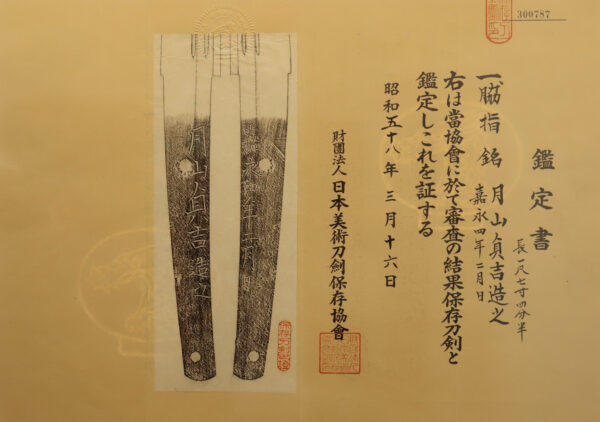 300787
鑑定書
一、脇指 銘 月山貞吉造之
嘉永四年二月日
長一尺七寸四分半
右は當協會に於て審査の結果保存刀剣と
鑑定しこれを証する
昭和五十八年 三月十六日
財團法人 日本美術刀劍保存協會
嘉永四年二月日
月山貞吉造之